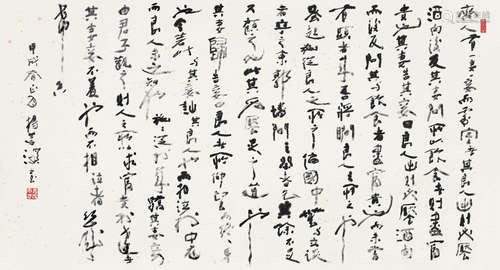 齊人有一妻一妾而處室者其良人出則必饜
酒肉而後反其妻問所與飲食者則盡富
貴也其妻告其妾曰良人出則必饜酒肉
而後反問其與飲食者盡富貴也而未嘗
有顯者來吾將瞷良人之所之也
蚤起施從良人之所之徧國中無與立談
者卒之東郭墦間之祭者乞其餘不足
又顧而之他此其為饜足之道也
其妻歸告其妾曰良人者所仰望而終身
也今若此與其妾訕其良人而相泣於中庭
而良人未之知也施施從外來驕其妻妾
由君子觀之則人之所以求富貴利達者
其妻妾不羞也而不相泣者幾希